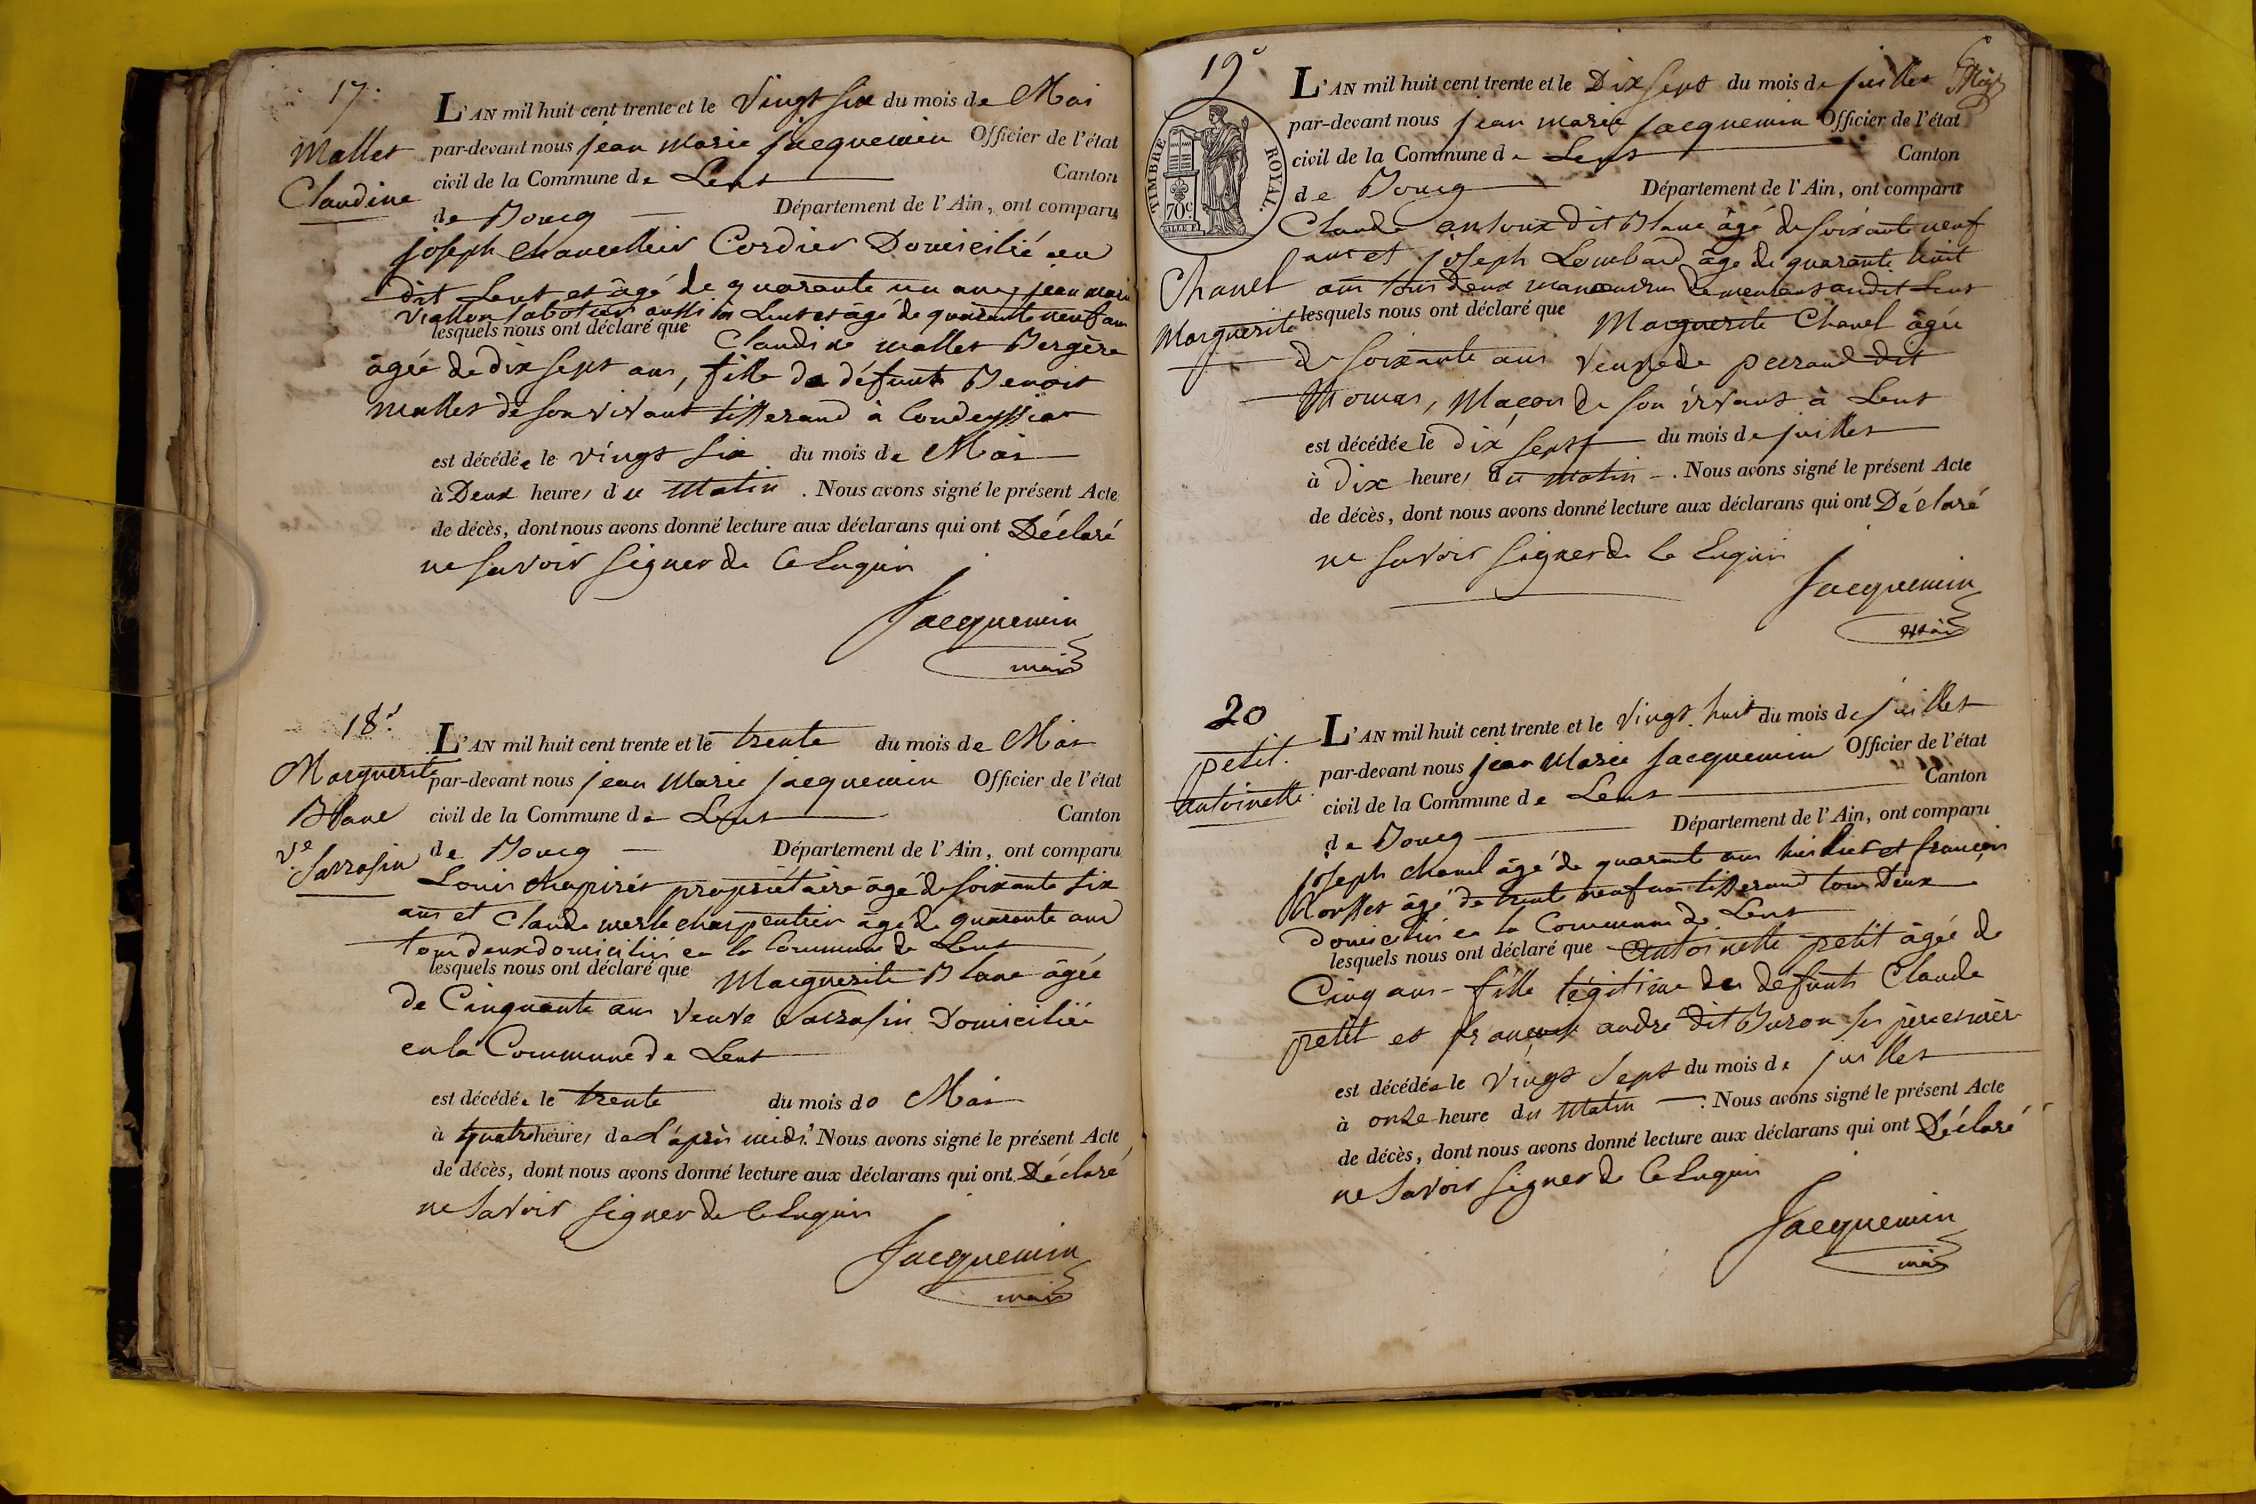 17.
Mallet
Claudine
L'AN mil huit cent trente et le Vingt six du mois de Mai
par-devant nous jean Marie jacquemin Officier de l'état
civil de la Commune de Lent Canton
de Bourg Département de l'Ain, ont comparu
joseph Cordier Domicilié au
dit Lent et âgé de quarante un ans, jean marie
Viallon Sabotier aussi à Lent et âgé de quarante neuf ans
lesquels nous ont déclaré que Claudine mallet Bergère
âgée de dix sept ans, fille de défunt Benoit
Mallet de son vivant tisserand à Condeyssiat
est décédée le vingt six du mois de Mai
à Deux heures du Matin. Nous avons signé le présent Acte
de décès, dont nous avons donné lecture aux déclarans qui ont Déclaré
ne savoir signer de ce Enquis
Jacquemin
maire
18.
Marguerite
Blanc
Ve
Sarrasin
L'AN mil huit cent trente et le trente du mois de Mai
par-devant nous jean Marie jacquemin Officier de l'état
civil de la Commune de Lent Canton
de Bourg Département de l'Ain, ont comparu
Louis propriétaire âgé de soixante six
ans et Claude merle charpentier âgé de quarante ans
tous deux domiciliés en la Commune de Lent
lesquels nous ont déclaré que Marguerite Blanc âgée
de Cinquante ans Veuve Sarrasin Domiciliée
en la Commune de Lent
est décédée le trente du mois de Mai
à quatre heures de L'après midi. Nous avons signé le présent Acte
de décès, dont nous avons donné lecture aux déclarans qui ont Déclaré
ne Savoir signer de ce Enquis
Jacquemin
maire
19e
TIMBRE ROYAL.
70c
Chanel
Marguerite
L'AN mil huit cent trente et le Dix sept du mois de juillet
par-devant nous jean marie jacquemin Officier de l'état
civil de la Commune de Lent Canton
de Bourg Département de l'Ain, ont comparu
Claude dit Blanc âgé de soixante neuf
ans et joseph Lombard âgé de quarante huit
ans tous deux manoeuvres demeurant audit Lent
lesquels nous ont déclaré que Marguerite Chanel âgée
de soixante ans Veuve de perrand dit
Thomas, Maçon de son vivant à Lent
est décédée le dix sept du mois de juillet
à Dix heures du matin. Nous avons signé le présent Acte
de décès, dont nous avons donné lecture aux déclarans qui ont Déclaré
ne savoir signer de ce Enquis
Jacquemin
maire
20
petit.
antoinette.
L'AN mil huit cent trente et le Vingt huit du mois de juillet
par-devant nous jean Marie Jacquemin Officier de l'état
civil de la Commune de Lent Canton
de Bourg Département de l'Ain, ont comparu
joseph chanel âgé de quarante ans huilier et françois
âgé de trente neuf ans tisserand tous deux
Domiciliés en la Commune de Lent
lesquels nous ont déclaré que Antoinette petit âgée de
Cinq ans - fille légitime des défunts Claude
petit et andré dit Buron ses père et mère
est décédée le Vingt Sept du mois de juillet
à onze heure du Matin. Nous avons signé le présent Acte
de décès, dont nous avons donné lecture aux déclarans qui ont Déclaré
ne Savoir signer de ce Enquis
Jacquemin
maire